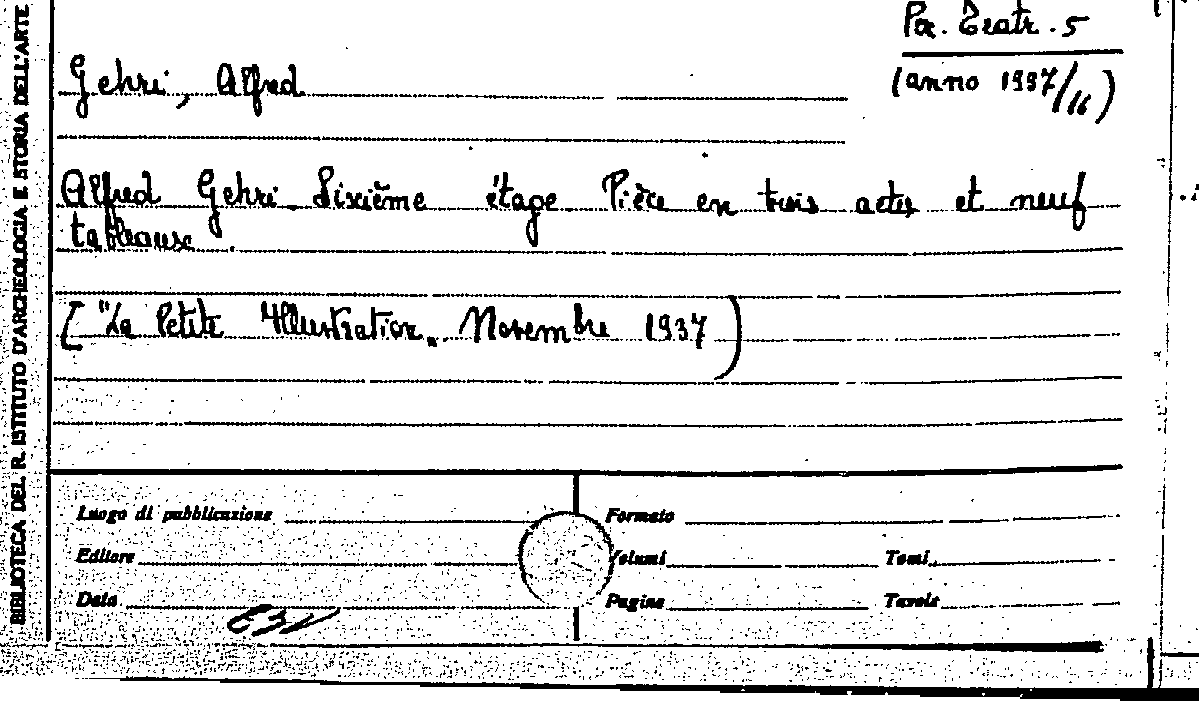 Per. Teatr. 5
(anno 1937/11)
Gehri, Alfred
Alfred Gehri. Sixième étage Pièce en trois actes et neuf
tableaux.
["La Petite Illustration„ Novembre 1937)
BIBLIOTECA DEL R. ISTITUTO D'ARCHEOLOGIA E STORIA DELL'ARTE
Luogo di pubblicazione
Formato
Editore
Volumi
Tomi
Data
Pagine
Tavole